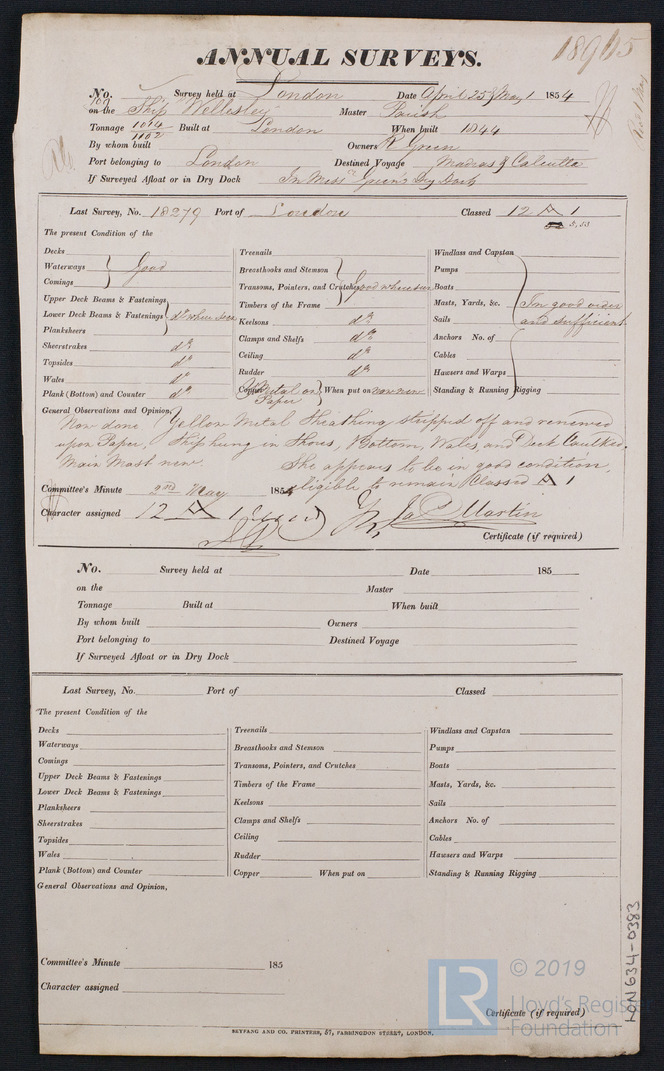 ANNUAL SURVEYS.
No. Survey held at London Date April 25 & May 1 1854
on the Ship Wellesley Master Parish
Tonnage 1014 Built at London When built 1844
1102
By whom built Owners R Green
Port belonging to London Destined Voyage Madras & Calcutta
If Surveyed Afloat or in Dry Dock In Messrs Green's Dry Dock
Last Survey, No. 18279 Port of London Classed 12 A 1
5,53
The present Condition of the
Decks Treenails Windlass and Capstan
Waterways Good Breasthooks and Stemson Pumps
Comings Transoms, Pointers, and Crutches Good where seen Boats
Upper Deck Beams & Fastenings Timbers of the Frame Masts, Yards, &c. In good order
Lower Deck Beams & Fastenings do where seen Keelsons do Sails and sufficient
Planksheers Clamps and Shelfs do Anchors No. of
Sheerstrakes do Ceiling do Cables
Topsides do Rudder do Hawsers and Warps
Wales do Copper Y Metal on Paper When put on now new Standing & Running Rigging
Plank (Bottom) and Counter do
General Observations and Opinion,
Now done Yellow Metal Sheathing stripped off and renewed
upon Paper, Ship hung in Shores, Bottom, Wales, and Deck Caulked.
Main Mast new. She appears to be in good condition,
eligible to remain Classed A 1
Committee's Minute 2nd May 1854
Character assigned 12 A 1 Jas Martin
Certificate (if required)
No. Survey held at Date 185
on the Master
Tonnage Built at When built
By whom built Owners
Port belonging to Destined Voyage
If Surveyed Afloat or in Dry Dock
Last Survey, No. Port of Classed
The present Condition of the
Decks Treenails Windlass and Capstan
Waterways Breasthooks and Stemson Pumps
Comings Transoms, Pointers, and Crutches Boats
Upper Deck Beams & Fastenings Timbers of the Frame Masts, Yards, &c.
Lower Deck Beams & Fastenings Keelsons Sails
Planksheers Clamps and Shelfs Anchors No. of
Sheerstrakes Ceiling Cables
Topsides Rudder Hawsers and Warps
Wales Copper When put on Standing & Running Rigging
Plank (Bottom) and Counter
General Observations and Opinion,
Committee's Minute 185
Character assigned
Certificate (if required)
SEYFANG AND CO. PRINTERS, 57, FARRINGDON STREET, LONDON.
LON634-0383
LR © 2019
Lloyd's Register
Foundation